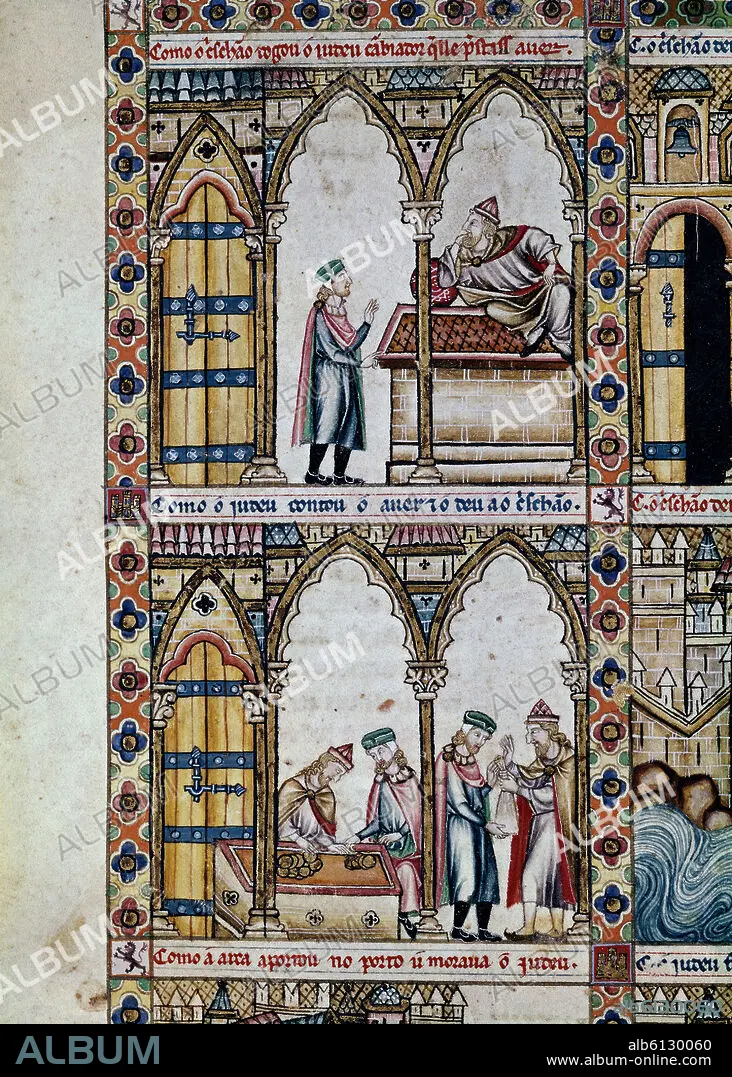 Como o c̃schão rogou o iudeu cãbiador q̃ lle p̃stass auer.
C. o c̃schão deu
Como o iudeu contou o auer ⁊ o deu a o c̃schão.
C. o c̃schão deu
Como a arca aportou no porto u moraua o iudeu.
iudeu
ALBUM
ab6130060
www.album-online.com